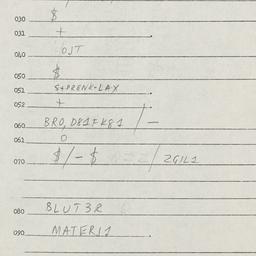 030 $
031 +
040 OJT
050 $
051 S+PRENK-LAX
052 +
060 BRO, D81FK81 / -
061 0
070 $/-$ / 2GIL1
080 BLUT3R
090 MATER11